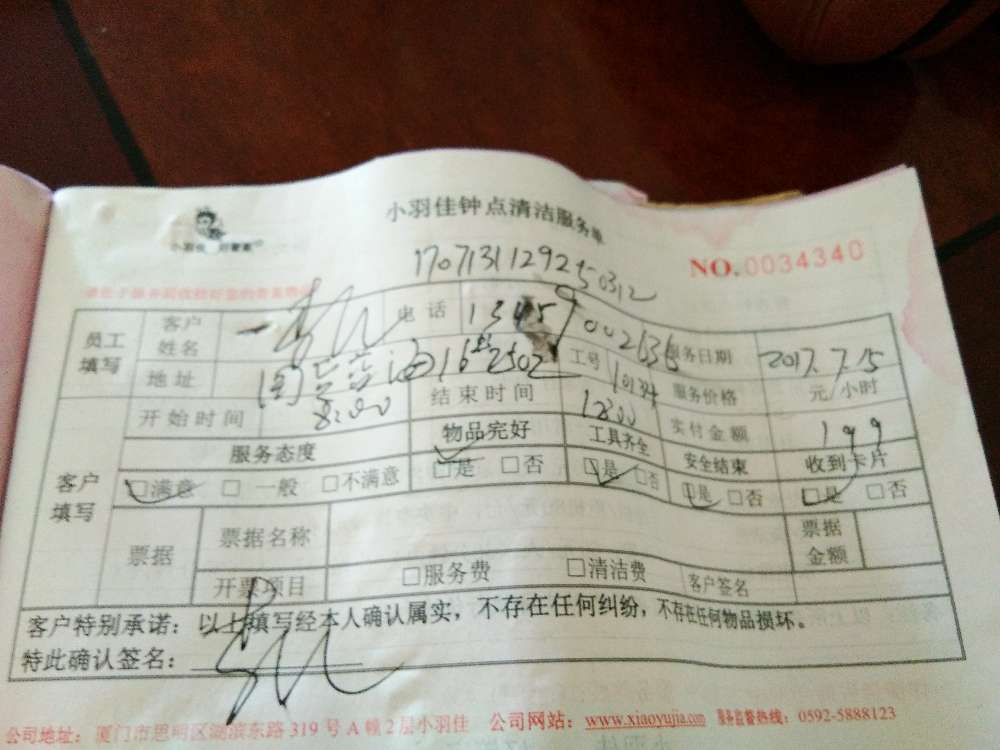 小羽佳钟点清洁服务单
小羽佳 好管家
NO.0034340
1707131129250312
员工填写 客户姓名 电话 服务日期 2017.7.15
地址 16 2502 工号 服务价格 元/小时
开始时间 8:00 结束时间 1200 实付金额 199
客户填写 服务态度 物品完好 工具齐全 安全结束 收到卡片
□满意 □一般 □不满意 □是 □否 □是 □否 □是 □否 □是 □否
票据 票据名称 票据金额
开票项目 □服务费 □清洁费 客户签名
客户特别承诺:以上填写经本人确认属实,不存在任何纠纷,不存在任何物品损坏。
特此确认签名:
公司地址:厦门市思明区湖滨东路319号A幢2层小羽佳 公司网站:www.xiaoyujia.com 服务监督热线:0592-5888123